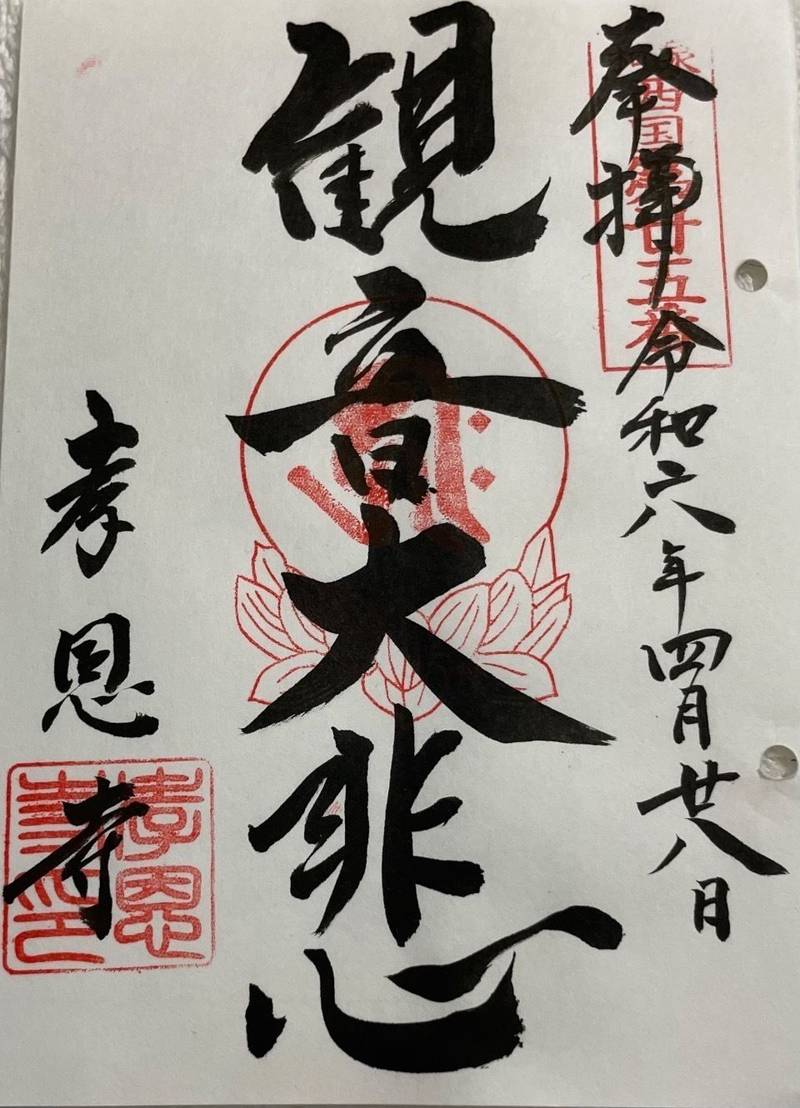 奉拝 令和六年四月廿八日
西国第廿五番
観音大悲
孝恩寺
孝恩寺印